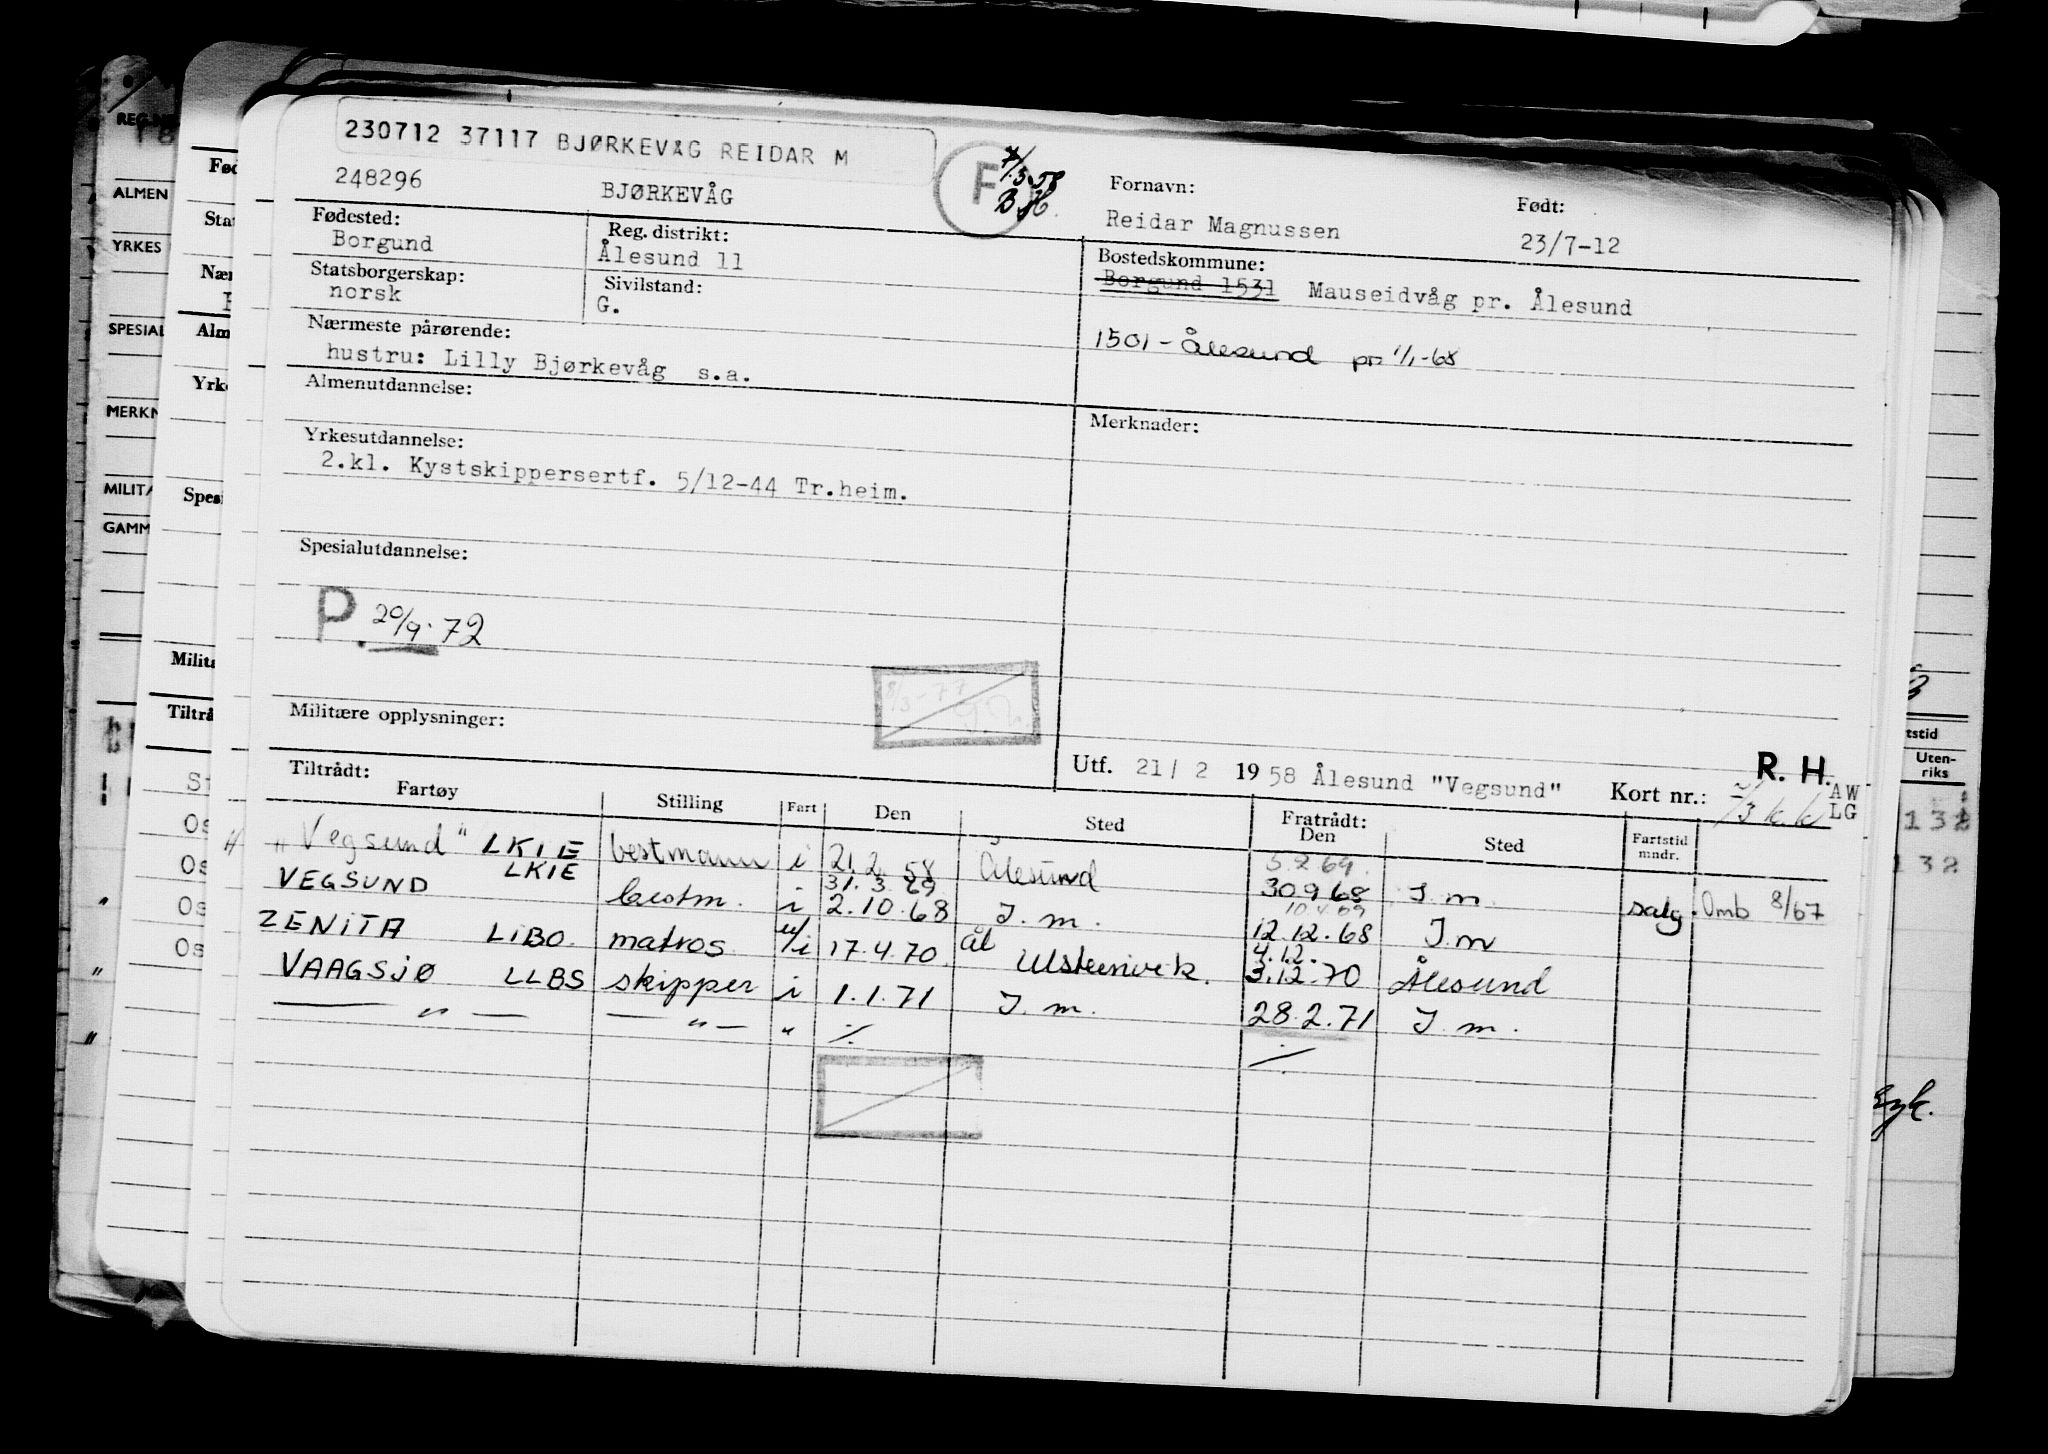 230712 37117 BJØRKEVÅG REIDAR M
248296 BJØRKEVÅG
F 7/3.58
Fornavn: Reidar Magnussen
Født: 23/7-12
Fødested: Borgund
Reg. distrikt: Ålesund 11
Bostedskommune: Borgund 1531 Mauseidvåg pr. Ålesund
1501 - Ålesund pr. 1/1-68
Statsborgerskap: norsk
Sivilstand: G.
Nærmeste pårørende:
hustru: Lilly Bjørkevåg s.a.
Almenutdannelse:
Merknader:
Yrkesutdannelse:
2.kl. Kystskippersertf. 5/12-44 Tr.heim.
Spesialutdannelse:
P. 20/9.72
8/3-77
Militære opplysninger:
R. H.
Utf. 21/ 2 1958 Ålesund "Vegsund" Kort nr.:
AW
LG
Tiltrådt:
Fartøy Stilling Fart Den Sted Fratrådt: Den Sted Fartstid mndr.
"Vegsund" LKIE bestmann i 21.2.58 Ålesund 5.2.69
VEGSUND LKIE bestm. i 31.3.69 2.10.68 I.m. 30.9.68 I.m. salg. Omb 8/67
10.4.69
ZENITA LIBO matros u/i 17.4.70 ål Ulsteinvik. 12.12.68 I.m
4.12.
VAAGSJØ LLBS skipper i 1.1.71 I.m. 3.12.70 Ålesund
— " — — " — " ./. 28.2.71 I.m.
./.
REG.NR
ALMEN
YRKES
SPESIAL
MERKN
MILITÆ
GAMM
Fød
Stat
Nær
Alm
Yrke
Spesi
Milita
Tiltrå
Os
Os
Os
Os
tstid
Uten-
riks
132
132